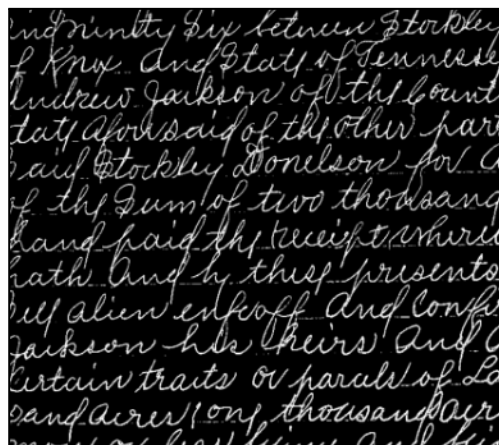 and ninety Six between Stockley
of Knox and State of Tennesse
Andrew Jackson of the Count
tate aforesaid of the other par
said Stockley Donelson for
of the Sum of two thousand
hand paid the receipt where
hath and by these presents
ell alien enfeoff and Conf
Jackson his heirs and
Certain traits or parcels of La
sand acres one thousand acr